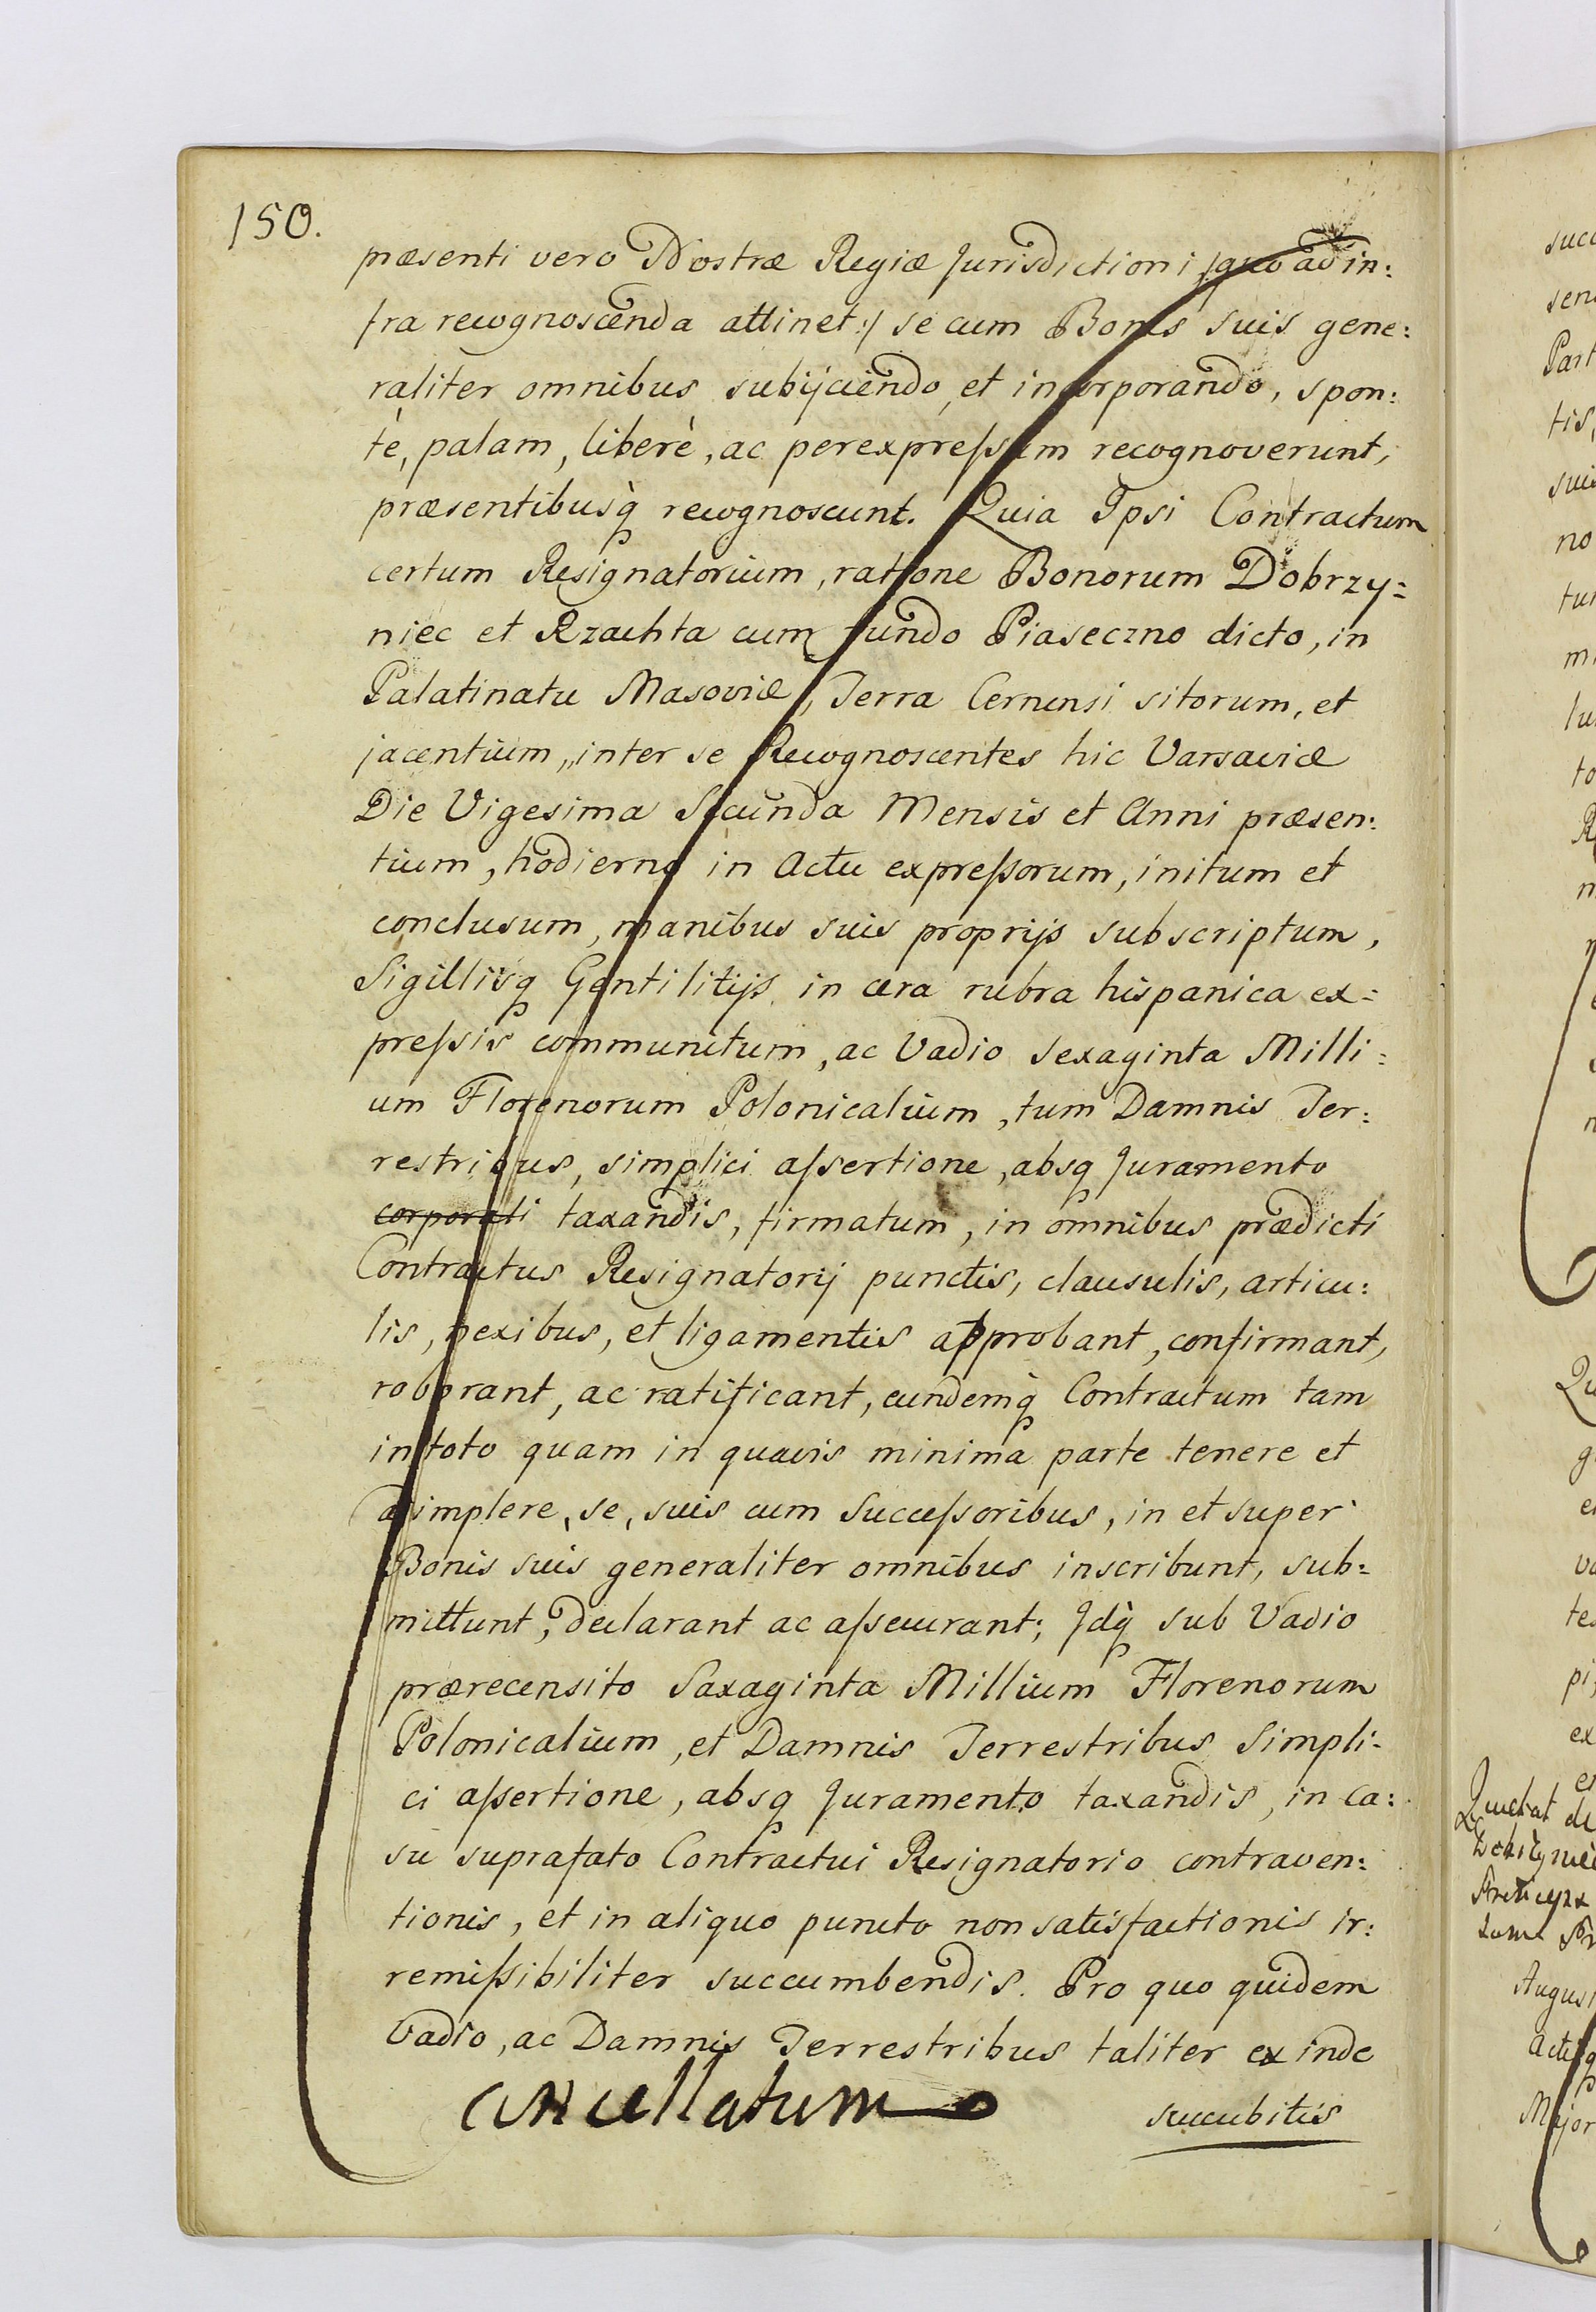 150.
præsenti vero Nostræ Regiæ Jurisdictioni /:quo ad in:
fra recognoscenda attinet:/ se cum Bonis suis gene:
raliter omnibus subijciendo, et incorporando, spon:
tè, palam, liberè, ac perexpreſsum recognoverunt,
præsentibusq̀ recognoscunt. Quia Ipsi Contractum
certum Resignatorium, ratione Bonorum Dobrzy=
niec et Rzachta cum fundo Piaseczno dicto, in
Palatinatu Masoviæ, Terra Cernensi sitorum, et
jacentium, inter se Recognoscentes hic Varsaviæ
Die Vigesima Secunda Mensis et Anni præsen:
tium, hodierno in Actu expreſsorum, initum et
conclusum, manibus suis proprijs subscriptum,
Sigillisq Gentilitijs in cera rubra hispanica ex=
preſsis communitum, ac Vadio Sexaginta Milli=
um Florenorum Polonicalium, tum Damnis Ter:
restribus, simplici aſsertione, absq Juramento
corporali taxandis, firmatum, in omnibus prædicti
Contractus Resignatorij punctis, clausulis, articu:
lis, nexibus, et ligamentis approbant, confirmant,
roborant, ac ratificant, eundemq̀ Contractum tam
in toto quam in quavis minima parte tenere et
adimplere, se, suis cum Succeſsoribus, in et super
Bonis suis generaliter omnibus inscribunt, sub=
mittunt, declarant ac aſsecurant; Idq̀ sub Vadio
prærecensito Saxaginta Millium Florenorum
Polonicalium, et Damnis Terrestribus Simpli=
ci aſsertione, absq Juramento taxandis, in ca:
su suprafato Contractui Resignatorio contraven:
tionis, et in aliquo puncto non satisfactionis ir:
remiſsibiliter succumbendis. Pro quo quidem
Vadio, ac Damnis Terrestribus taliter ex inde
Cancellatum
succubitis